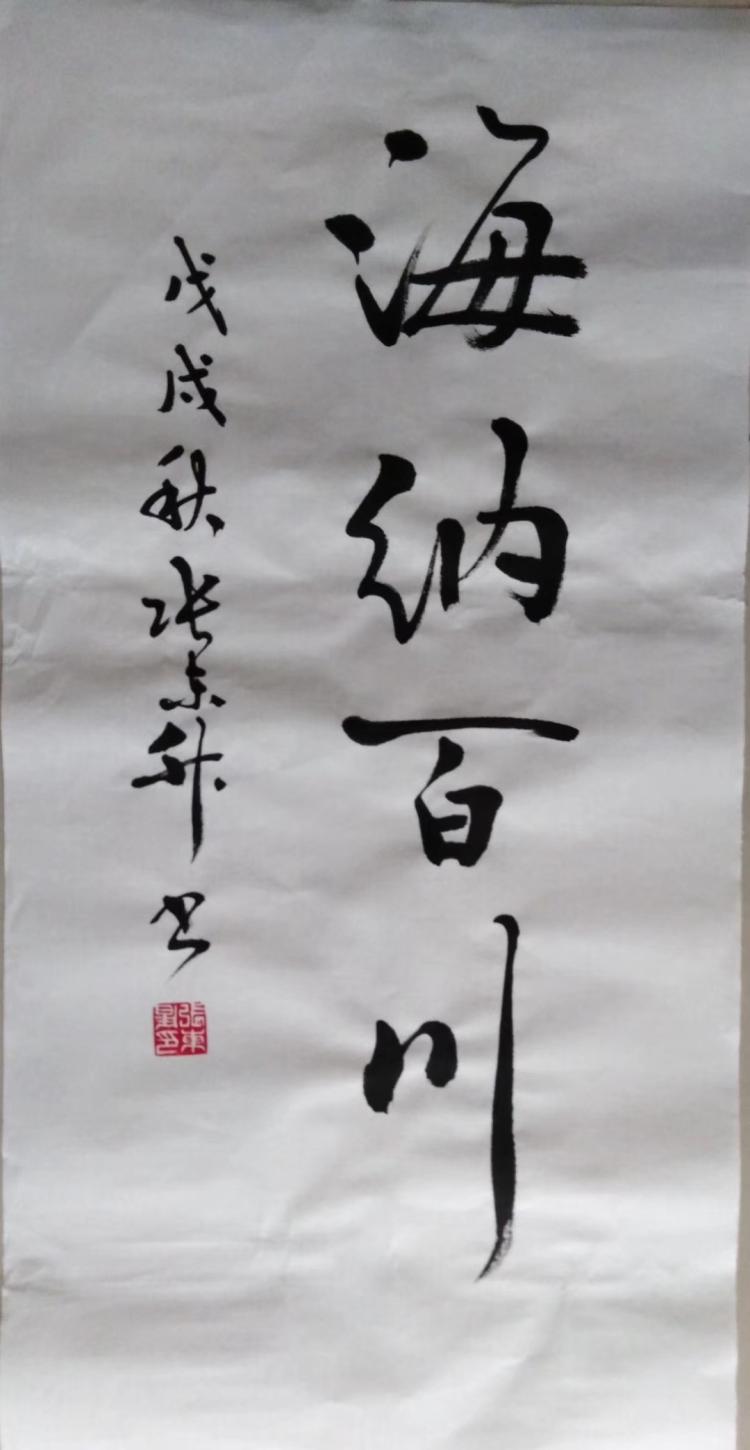 海纳百川
戊戌秋张东升书
张东昇印